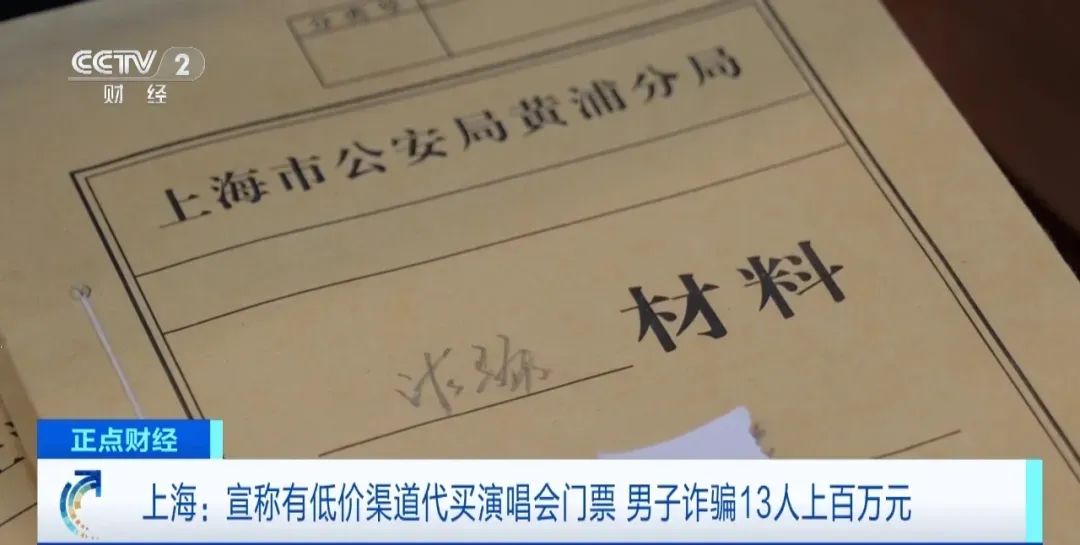 CCTV 2
财经
分类号
上海市公安局黄浦分局
材料
正点财经
上海：宣称有低价渠道代买演唱会门票 男子诈骗13人上百万元